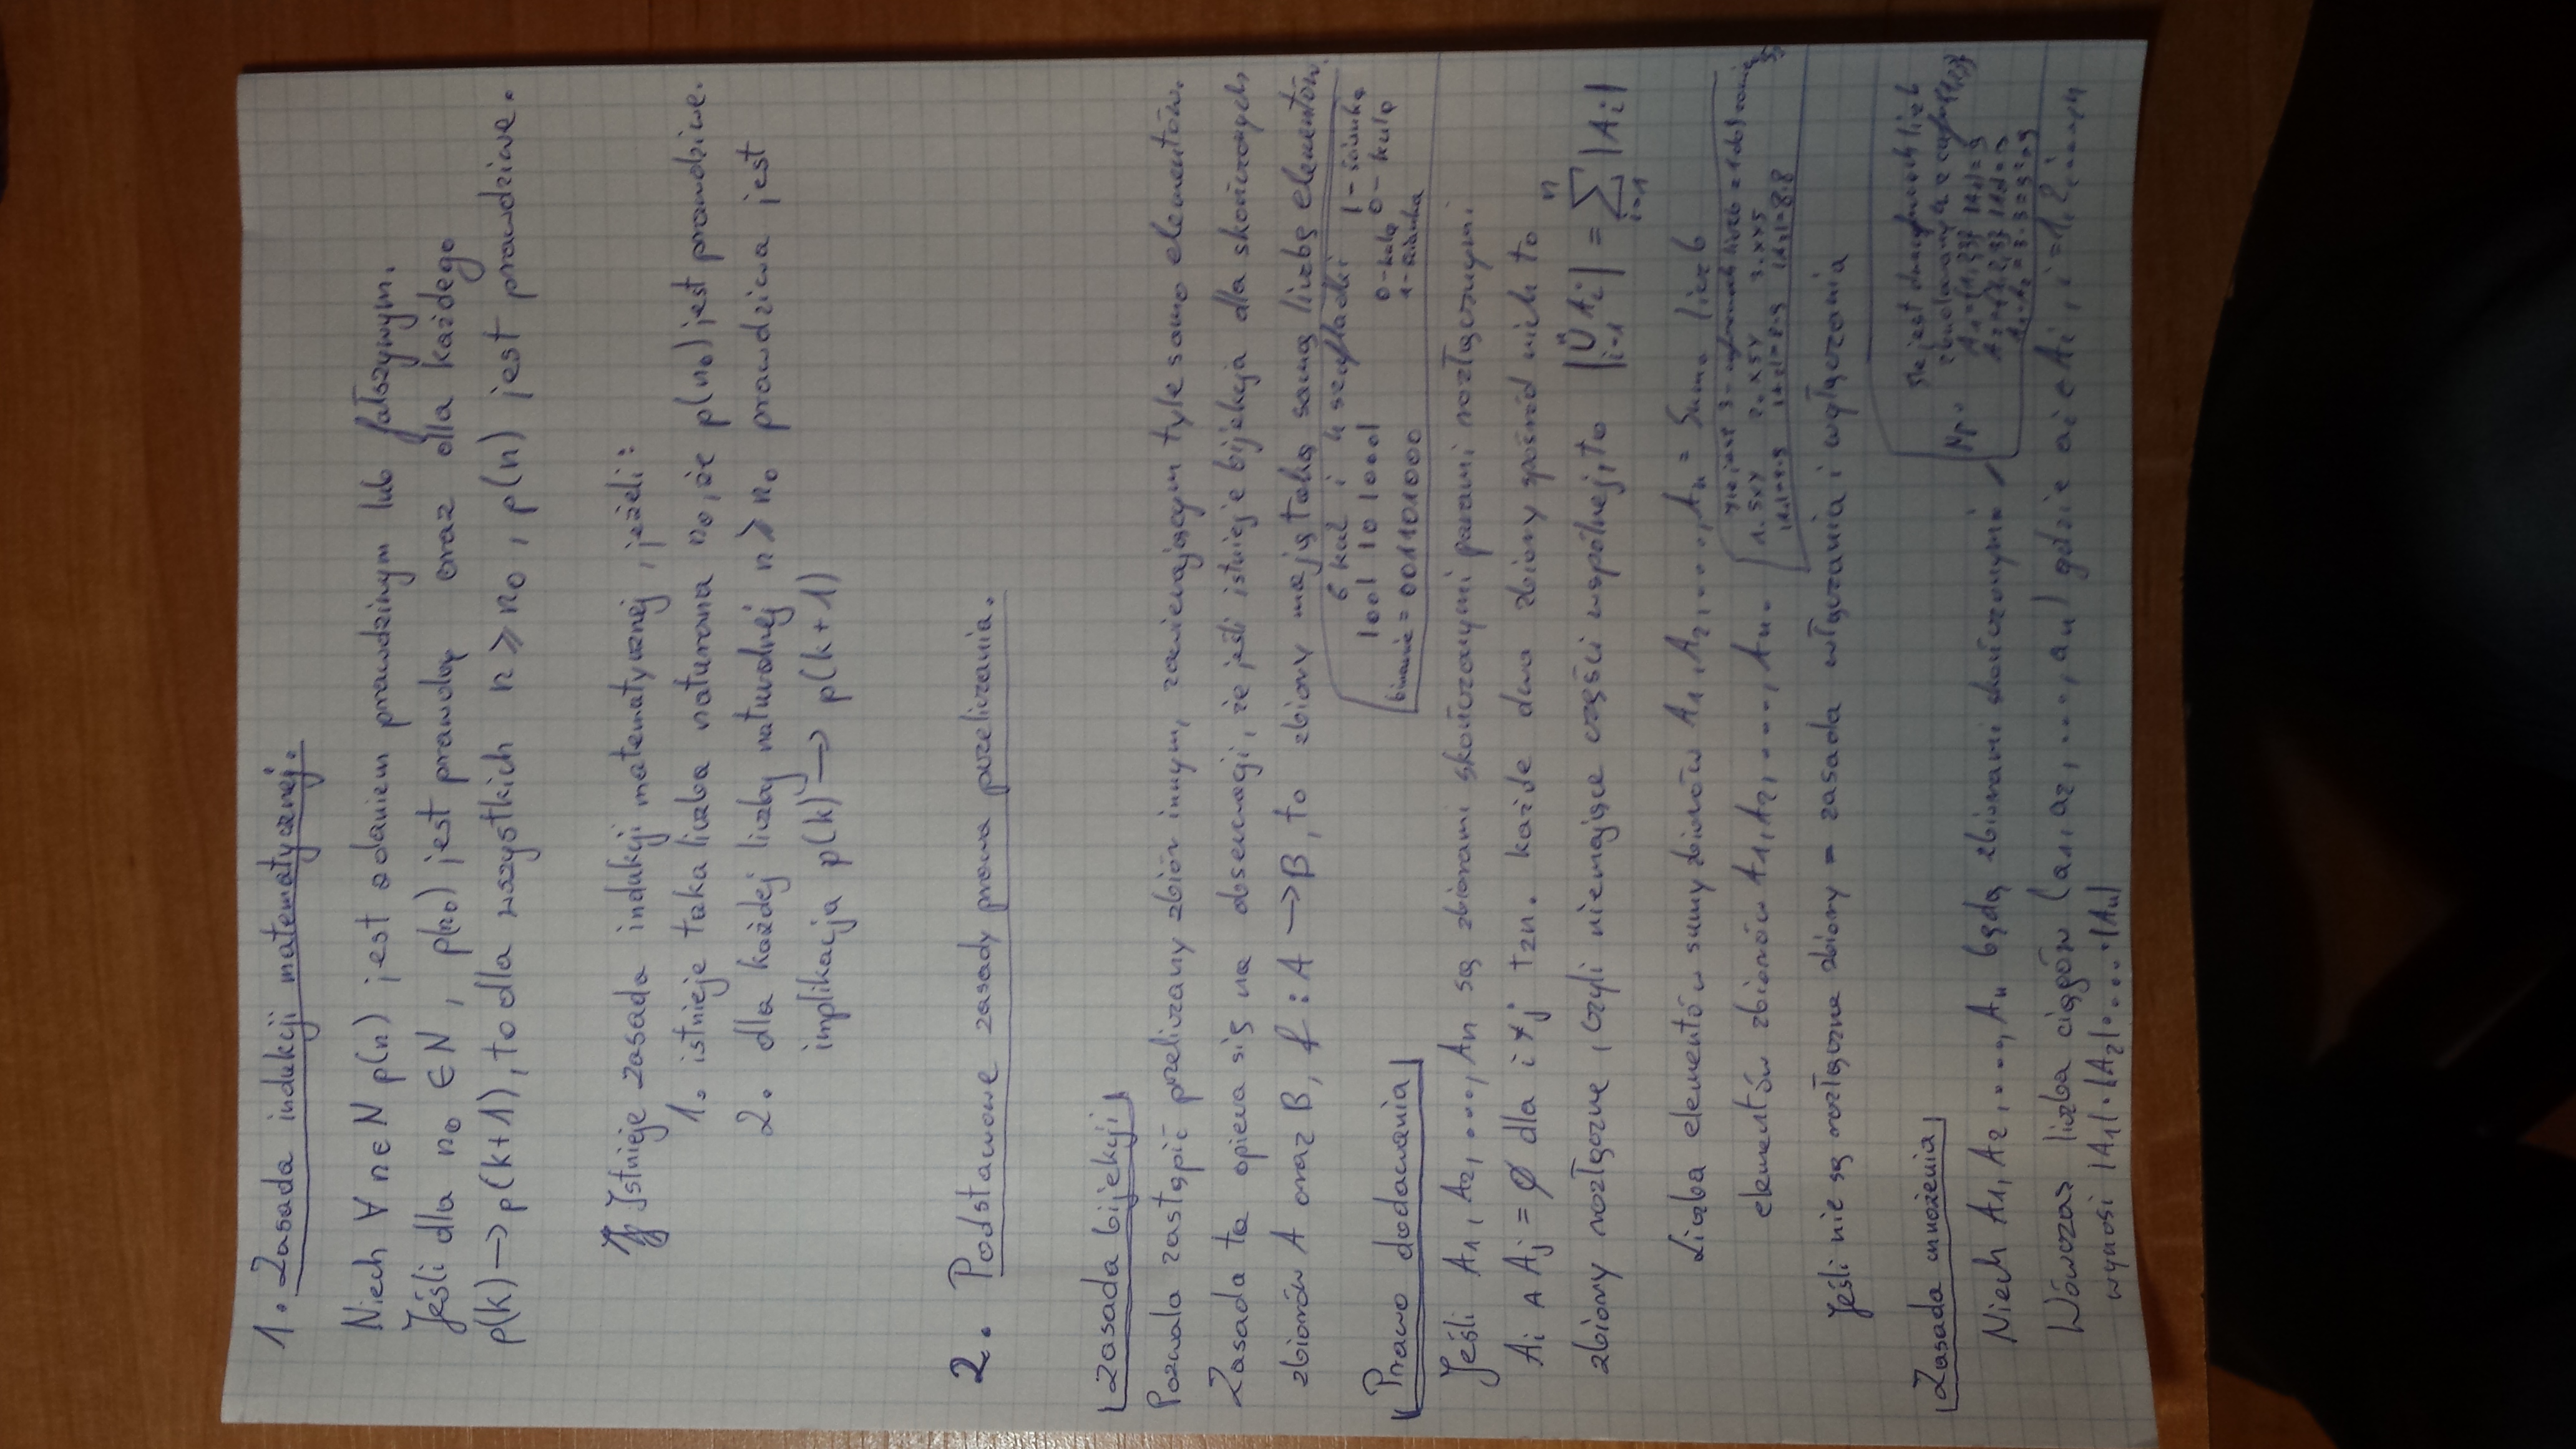 1. Zasada indukcji matematycznej.
Niech ∀ n∈N p(n) jest zdaniem prawdziwym lub fałszywym.
Jeśli dla n₀ ∈ N, p(n₀) jest prawdą oraz dla każdego
p(k) → p(k+1), to dla wszystkich n ⩾ n₀, p(n) jest prawdziwe.
Istnieje zasada indukcji matematycznej, jeżeli:
1. istnieje taka liczba naturana n₀, że p(n₀) jest prawdziwe.
2. dla każdej liczby naturalnej n ⩾ n₀ prawdziwa jest
implikacja p(k) → p(k+1)
2. Podstawowe zasady prawa przeliczania.
Zasada bijekcji
Pozwala zastąpić przeliczany zbiór innym, zawierającym tyle samo elementów.
Zasada ta opiera się na obserwacji, że jeśli istnieje bijekcja dla skończonych
zbiorów A oraz B, f : A → B, to zbiory mają taką samą liczbę elementów.
6 kul i 4 szufladki
|00| |0 |000|
1 - ścianka
0 - kula
0-kula
1-ścianka
binarnie = 001101000
Prawo dodawania
Jeśli A₁, A₂, ..., Aₙ są zbiorami skończonymi parami rozłącznymi
Aᵢ ∧ Aⱼ = ∅ dla i ≠ j tzn. każde dwa zbiory spośród nich to
zbiory rozłączne, czyli niemające części wspólnej, to |⋃ⁿᵢ₌₁ Aᵢ| = ∑ⁿᵢ₌₁ |Aᵢ|
Liczba elementów sumy zbiorów A₁, A₂, ...., Aₙ = Suma liczb
elementów zbiorów A₁, A₂, ...., Aₙ.
Ile jest 3-cyfrowych liczb z 1
1. 5XY 2. X5Y 3. XY5
|A₃|=8.8
Jeśli nie są rozłączne zbiory = zasada włączania i wyłączania
Zasada mnożenia
Niech A₁, A₂, ...., Aₙ będą zbiorami skończonymi
Np.
Ile jest dwucyfrowych liczb
zbudowanych z cyfr {1,2,3}
Wówczas liczba ciągów (a₁, a₂, ...., aₙ) gdzie aᵢ ∈ Aᵢ, i = 1, 2, ...., n
wynosi |A₁|·|A₂|·....·|Aₙ|